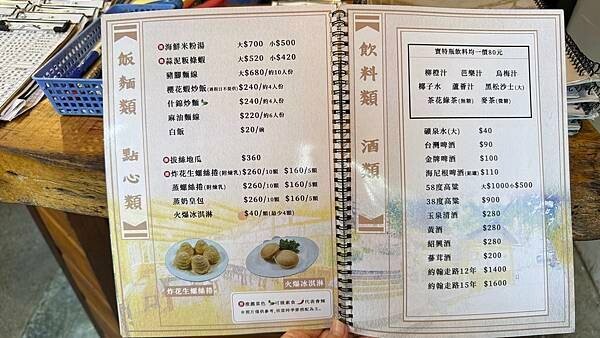 飯麵類 點心類
海鮮米粉湯 大$700 小$500
蒜泥粄條蝦 大$520 小$420
豬腳麵線 大$680/約10人份
櫻花蝦炒飯 $240/約4人份
什錦炒麵 $240/約4人份
麻油麵線 $220/約6人份
白飯 $20/碗
拔絲地瓜 $360
炸花生螺絲捲(附煉乳) $260/10顆 $160/5顆
蒸螺絲捲(附煉乳) $260/10顆 $160/5顆
蒸奶皇包 $260/10顆 $160/5顆
火爆冰淇淋 $40/顆(最少4顆)
炸花生螺絲捲
火爆冰淇淋
推薦菜色 可做素食 代表會辣
飲料類 酒類
寶特瓶飲料均一價80元
柳橙汁 芭樂汁 烏梅汁
椰子水 蘆薈汁 黑松沙士(大)
茶花綠茶(無糖) 麥茶(微糖)
礦泉水(大) $40
台灣啤酒 $90
金牌啤酒 $100
海尼根啤酒 $110
58度高粱 大$1000 小$500
38度高粱 $900
玉泉清酒 $280
黃酒 $280
紹興酒 $280
蔘茸酒 $200
約翰走路12年 $1400
約翰走路15年 $1600